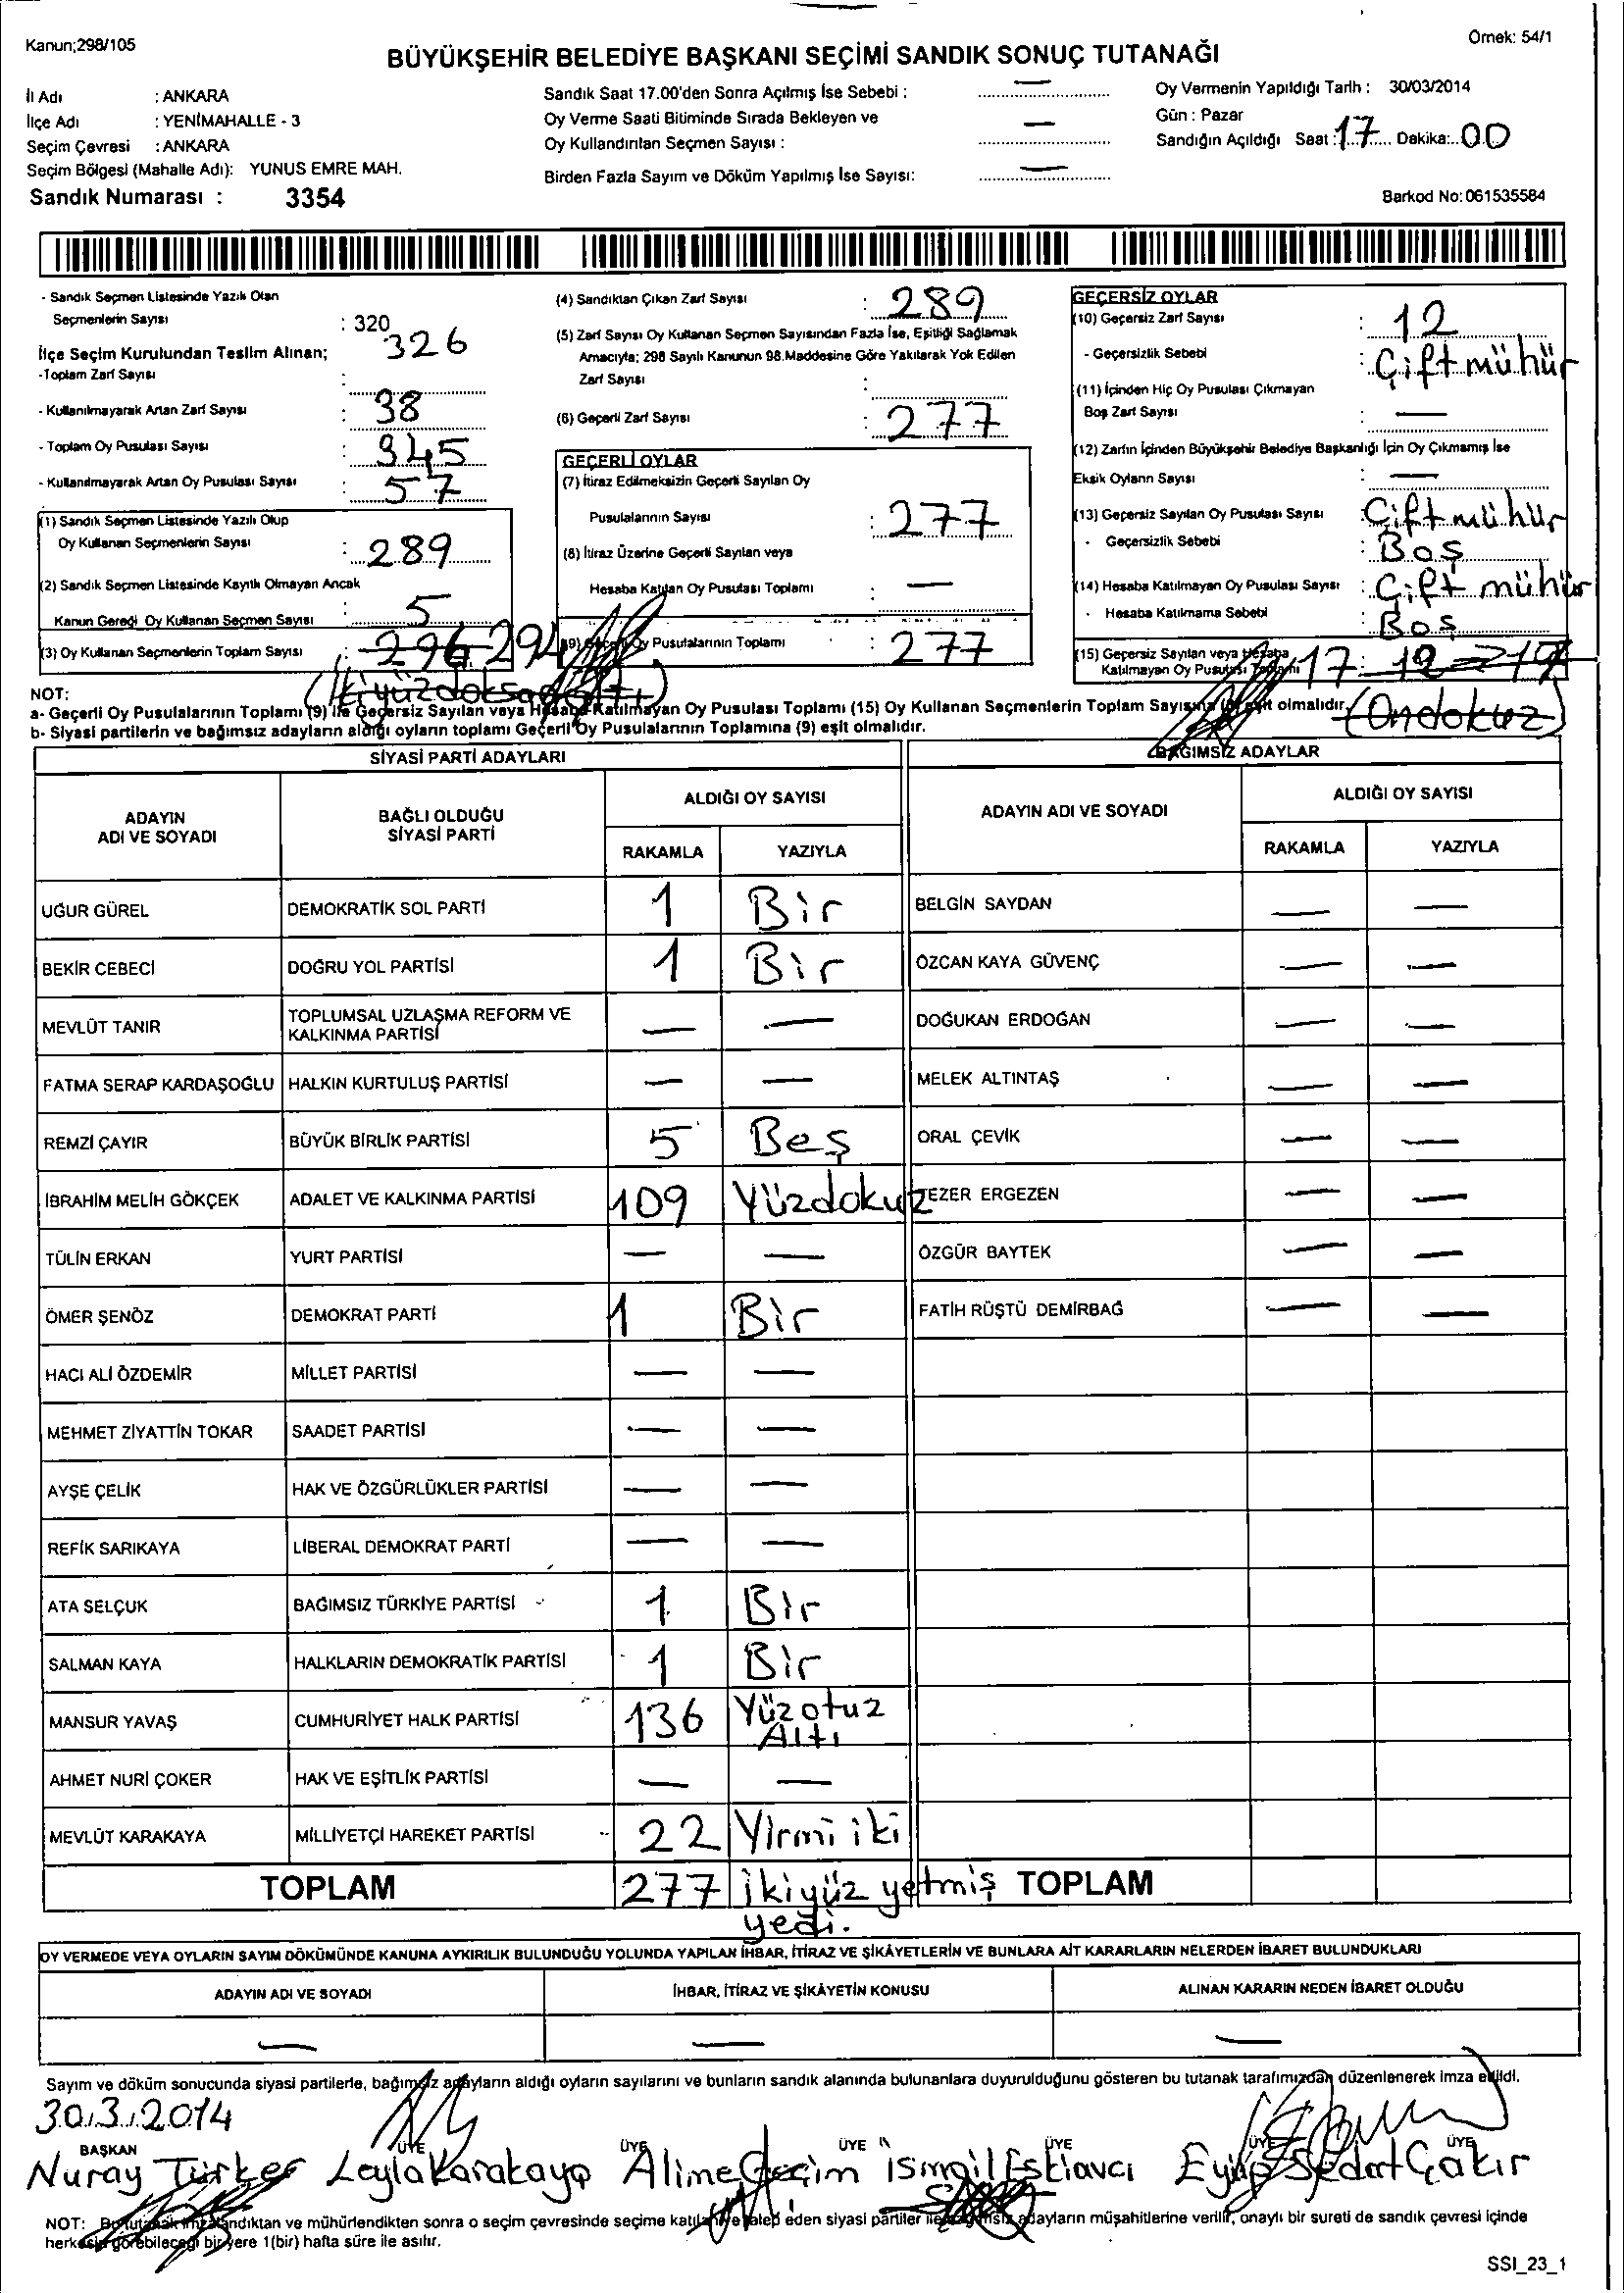 Kanun;298/105
Örnek: 54/1
BÜYÜKŞEHİR BELEDİYE BAŞKANI SEÇİMİ SANDIK SONUÇ TUTANAĞI
İl Adı : ANKARA
İlçe Adı : YENİMAHALLE - 3
Seçim Çevresi : ANKARA
Seçim Bölgesi (Mahalle Adı): YUNUS EMRE MAH.
Sandık Numarası : 3354
Sandık Saat 17.00'den Sonra Açılmış İse Sebebi : —
Oy Verme Saati Bitiminde Sırada Bekleyen ve
Oy Kullandırılan Seçmen Sayısı : —
Birden Fazla Sayım ve Döküm Yapılmış İse Sayısı: —
Oy Vermenin Yapıldığı Tarih : 30/03/2014
Gün : Pazar
Sandığın Açıldığı Saat : 17 Dakika: 00
Barkod No: 061535584
- Sandık Seçmen Listesinde Yazılı Olan
Seçmenlerin Sayısı : 320
İlçe Seçim Kurulundan Teslim Alınan;
-Toplam Zarf Sayısı : 326
- Kullanılmayarak Artan Zarf Sayısı : 38
- Toplam Oy Pusulası Sayısı : 345
- Kullanılmayarak Artan Oy Pusulası Sayısı : 57
(1) Sandık Seçmen Listesinde Yazılı Olup
Oy Kullanan Seçmenlerin Sayısı : 289
(2) Sandık Seçmen Listesinde Kayıtlı Olmayan Ancak
Kanun Gereği Oy Kullanan Seçmen Sayısı : 5
(3) Oy Kullanan Seçmenlerin Toplam Sayısı : 296 294
(İkiyüzdoksanaltı)
(4) Sandıktan Çıkan Zarf Sayısı : 289
(5) Zarf Sayısı Oy Kullanan Seçmen Sayısından Fazla İse, Eşitliği Sağlamak
Amacıyla; 298 Sayılı Kanunun 98.Maddesine Göre Yakılarak Yok Edilen
Zarf Sayısı :
(6) Geçerli Zarf Sayısı : 277
GEÇERLİ OYLAR
(7) İtiraz Edilmeksizin Geçerli Sayılan Oy
Pusulalarının Sayısı : 277
(8) İtiraz Üzerine Geçerli Sayılan veya
Hesaba Katılan Oy Pusulası Toplamı : —
(9) Geçerli Oy Pusulalarının Toplamı : 277
GEÇERSİZ OYLAR
(10) Geçersiz Zarf Sayısı : 12
- Geçersizlik Sebebi : Çift mühür
(11) İçinden Hiç Oy Pusulası Çıkmayan
Boş Zarf Sayısı : —
(12) Zarfın İçinden Büyükşehir Belediye Başkanlığı İçin Oy Çıkmamış İse
Eksik Oyların Sayısı : —
(13) Geçersiz Sayılan Oy Pusulası Sayısı : Çift mühür
- Geçersizlik Sebebi : Boş
(14) Hesaba Katılmayan Oy Pusulası Sayısı : Çift mühür
- Hesaba Katılmama Sebebi : Boş
(15) Geçersiz Sayılan veya Hesaba
Katılmayan Oy Pusulası Toplamı 17 : 19
(Ondokuz)
NOT:
a- Geçerli Oy Pusulalarının Toplamı (9) ile Geçersiz Sayılan veya Hesaba Katılmayan Oy Pusulası Toplamı (15) Oy Kullanan Seçmenlerin Toplam Sayısına (3) eşit olmalıdır.
b- Siyasi partilerin ve bağımsız adayların aldığı oyların toplamı Geçerli Oy Pusulalarının Toplamına (9) eşit olmalıdır.
SİYASİ PARTİ ADAYLARI
BAĞIMSIZ ADAYLAR
ADAYIN ADI VE SOYADI
BAĞLI OLDUĞU SİYASİ PARTİ
ALDIĞI OY SAYISI
RAKAMLA YAZIYLA
ADAYIN ADI VE SOYADI
ALDIĞI OY SAYISI
RAKAMLA YAZIYLA
UĞUR GÜREL DEMOKRATİK SOL PARTİ 1 Bir BELGİN SAYDAN — —
BEKİR CEBECİ DOĞRU YOL PARTİSİ 1 Bir ÖZCAN KAYA GÜVENÇ — —
MEVLÜT TANIR TOPLUMSAL UZLAŞMA REFORM VE KALKINMA PARTİSİ — — DOĞUKAN ERDOĞAN — —
FATMA SERAP KARDAŞOĞLU HALKIN KURTULUŞ PARTİSİ — — MELEK ALTINTAŞ — —
REMZİ ÇAYIR BÜYÜK BİRLİK PARTİSİ 5 Beş ORAL ÇEVİK — —
İBRAHİM MELİH GÖKÇEK ADALET VE KALKINMA PARTİSİ 109 Yüzdokuz TEZER ERGEZEN — —
TÜLİN ERKAN YURT PARTİSİ — — ÖZGÜR BAYTEK — —
ÖMER ŞENÖZ DEMOKRAT PARTİ 1 Bir FATİH RÜŞTÜ DEMİRBAĞ — —
HACI ALİ ÖZDEMİR MİLLET PARTİSİ — —
MEHMET ZİYATTİN TOKAR SAADET PARTİSİ — —
AYŞE ÇELİK HAK VE ÖZGÜRLÜKLER PARTİSİ — —
REFİK SARIKAYA LİBERAL DEMOKRAT PARTİ — —
ATA SELÇUK BAĞIMSIZ TÜRKİYE PARTİSİ 1 Bir
SALMAN KAYA HALKLARIN DEMOKRATİK PARTİSİ 1 Bir
MANSUR YAVAŞ CUMHURİYET HALK PARTİSİ 136 Yüzotuz Altı
AHMET NURİ ÇOKER HAK VE EŞİTLİK PARTİSİ — —
MEVLÜT KARAKAYA MİLLİYETÇİ HAREKET PARTİSİ 22 Yirmi iki
TOPLAM 277 İkiyüz yetmiş yedi. TOPLAM
OY VERMEDE VEYA OYLARIN SAYIM DÖKÜMÜNDE KANUNA AYKIRILIK BULUNDUĞU YOLUNDA YAPILAN İHBAR, İTİRAZ VE ŞİKÂYETLERİN VE BUNLARA AİT KARARLARIN NELERDEN İBARET BULUNDUKLARI
ADAYIN ADI VE SOYADI İHBAR, İTİRAZ VE ŞİKÂYETİN KONUSU ALINAN KARARIN NEDEN İBARET OLDUĞU
— — —
Sayım ve döküm sonucunda siyasi partilerle, bağımsız adayların aldığı oyların sayılarını ve bunların sandık alanında bulunanlara duyurulduğunu gösteren bu tutanak tarafımızdan düzenlenerek imza edildi.
30.3.2014
BAŞKAN ÜYE ÜYE ÜYE ÜYE ÜYE ÜYE
Nuray Türker Leyla Karakaya Alime Geçim İsmail Eskiavcı Eyüp Sedat Çakır
NOT: Bu tutanak imzalandıktan ve mühürlendikten sonra o seçim çevresinde seçime katılan ve talep eden siyasi partiler ile bağımsız adayların müşahitlerine verilir, onaylı bir sureti de sandık çevresi içinde
herkesin görebileceği bir yere 1(bir) hafta süre ile asılır.
SSI_23_1